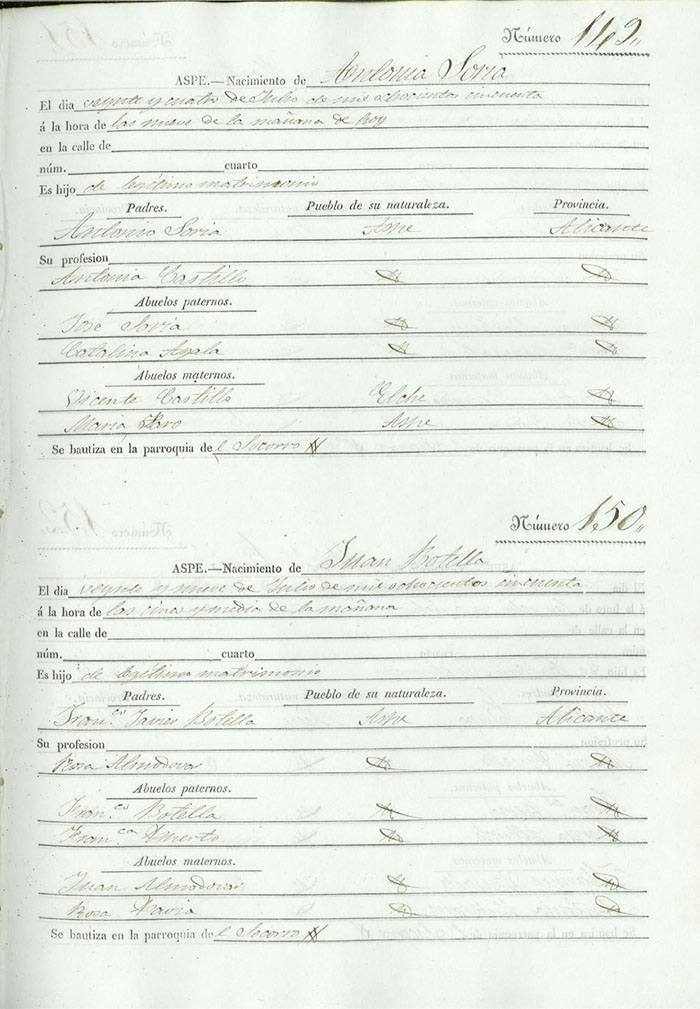 Número 149,,
ASPE.—Nacimiento de Antonia Soria
El dia veynte y cuatro de Julio de mil ochocientos cincuenta
á la hora de las nueve de la mañana de hoy
en la calle de
núm. cuarto
Es hijo de legítimo matrimonio
Padres. Pueblo de su naturaleza. Provincia.
Antonio Soria Aspe Alicante
Su profesion
Antonia Castillo
Abuelos paternos.
José Soria
Catalina Ayala
Abuelos maternos.
Vicente Castillo Elche
Maria Aspe
Se bautiza en la parroquia del Socorro
Número 150,,
ASPE.—Nacimiento de Juan Botella
El dia veynte y nueve de Julio de mil ochocientos cincuenta
á la hora de las cinco y media de la mañana
en la calle de
núm. cuarto
Es hijo de legítimo matrimonio
Padres. Pueblo de su naturaleza. Provincia.
Fran.co Javier Botella Aspe Alicante
Su profesion
Rosa Almodovar
Abuelos paternos.
Fran.co Botella
Fran.ca
Abuelos maternos.
Juan Almodovar
Rosa
Se bautiza en la parroquia del Socorro